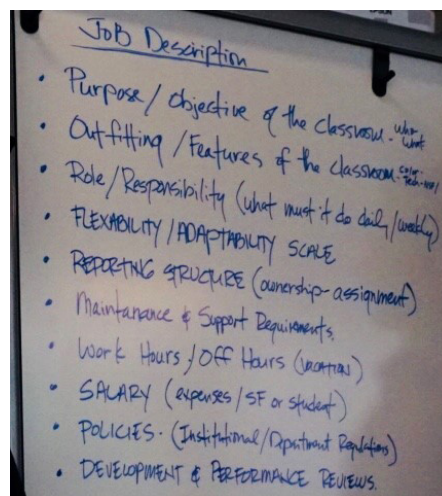 Job Description
• Purpose / Objective of the classroom -
• Outfitting / Features of the classroom -
• Role/Responsibility (what must it do daily/weekly)
• FLEXABILITY / ADAPTABILITY SCALE
• REPORTING STRUCTURE (ownership - assignment)
• Maintanance & Support Requirements.
• Work Hours / Off Hours (VACATION)
• SALARY (expenses / SF or student)
• POLICIES. (Institutional / Department Regulations)
• DEVELOPMENT & PERFORMANCE REVIEWS.